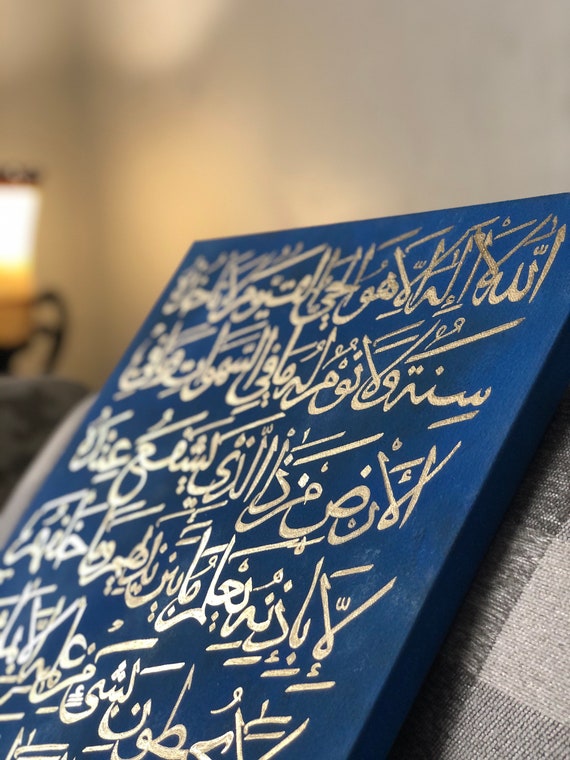 الله لا إله إلا هو الحي القيوم لا تأخذه
سنة ولا نوم له ما في السموات وما في
الأرض من ذا الذي يشفع عنده
إلا بإذنه يعلم ما بين أيديهم وما خلفهم
ولا يحيطون بشيء من علمه إلا